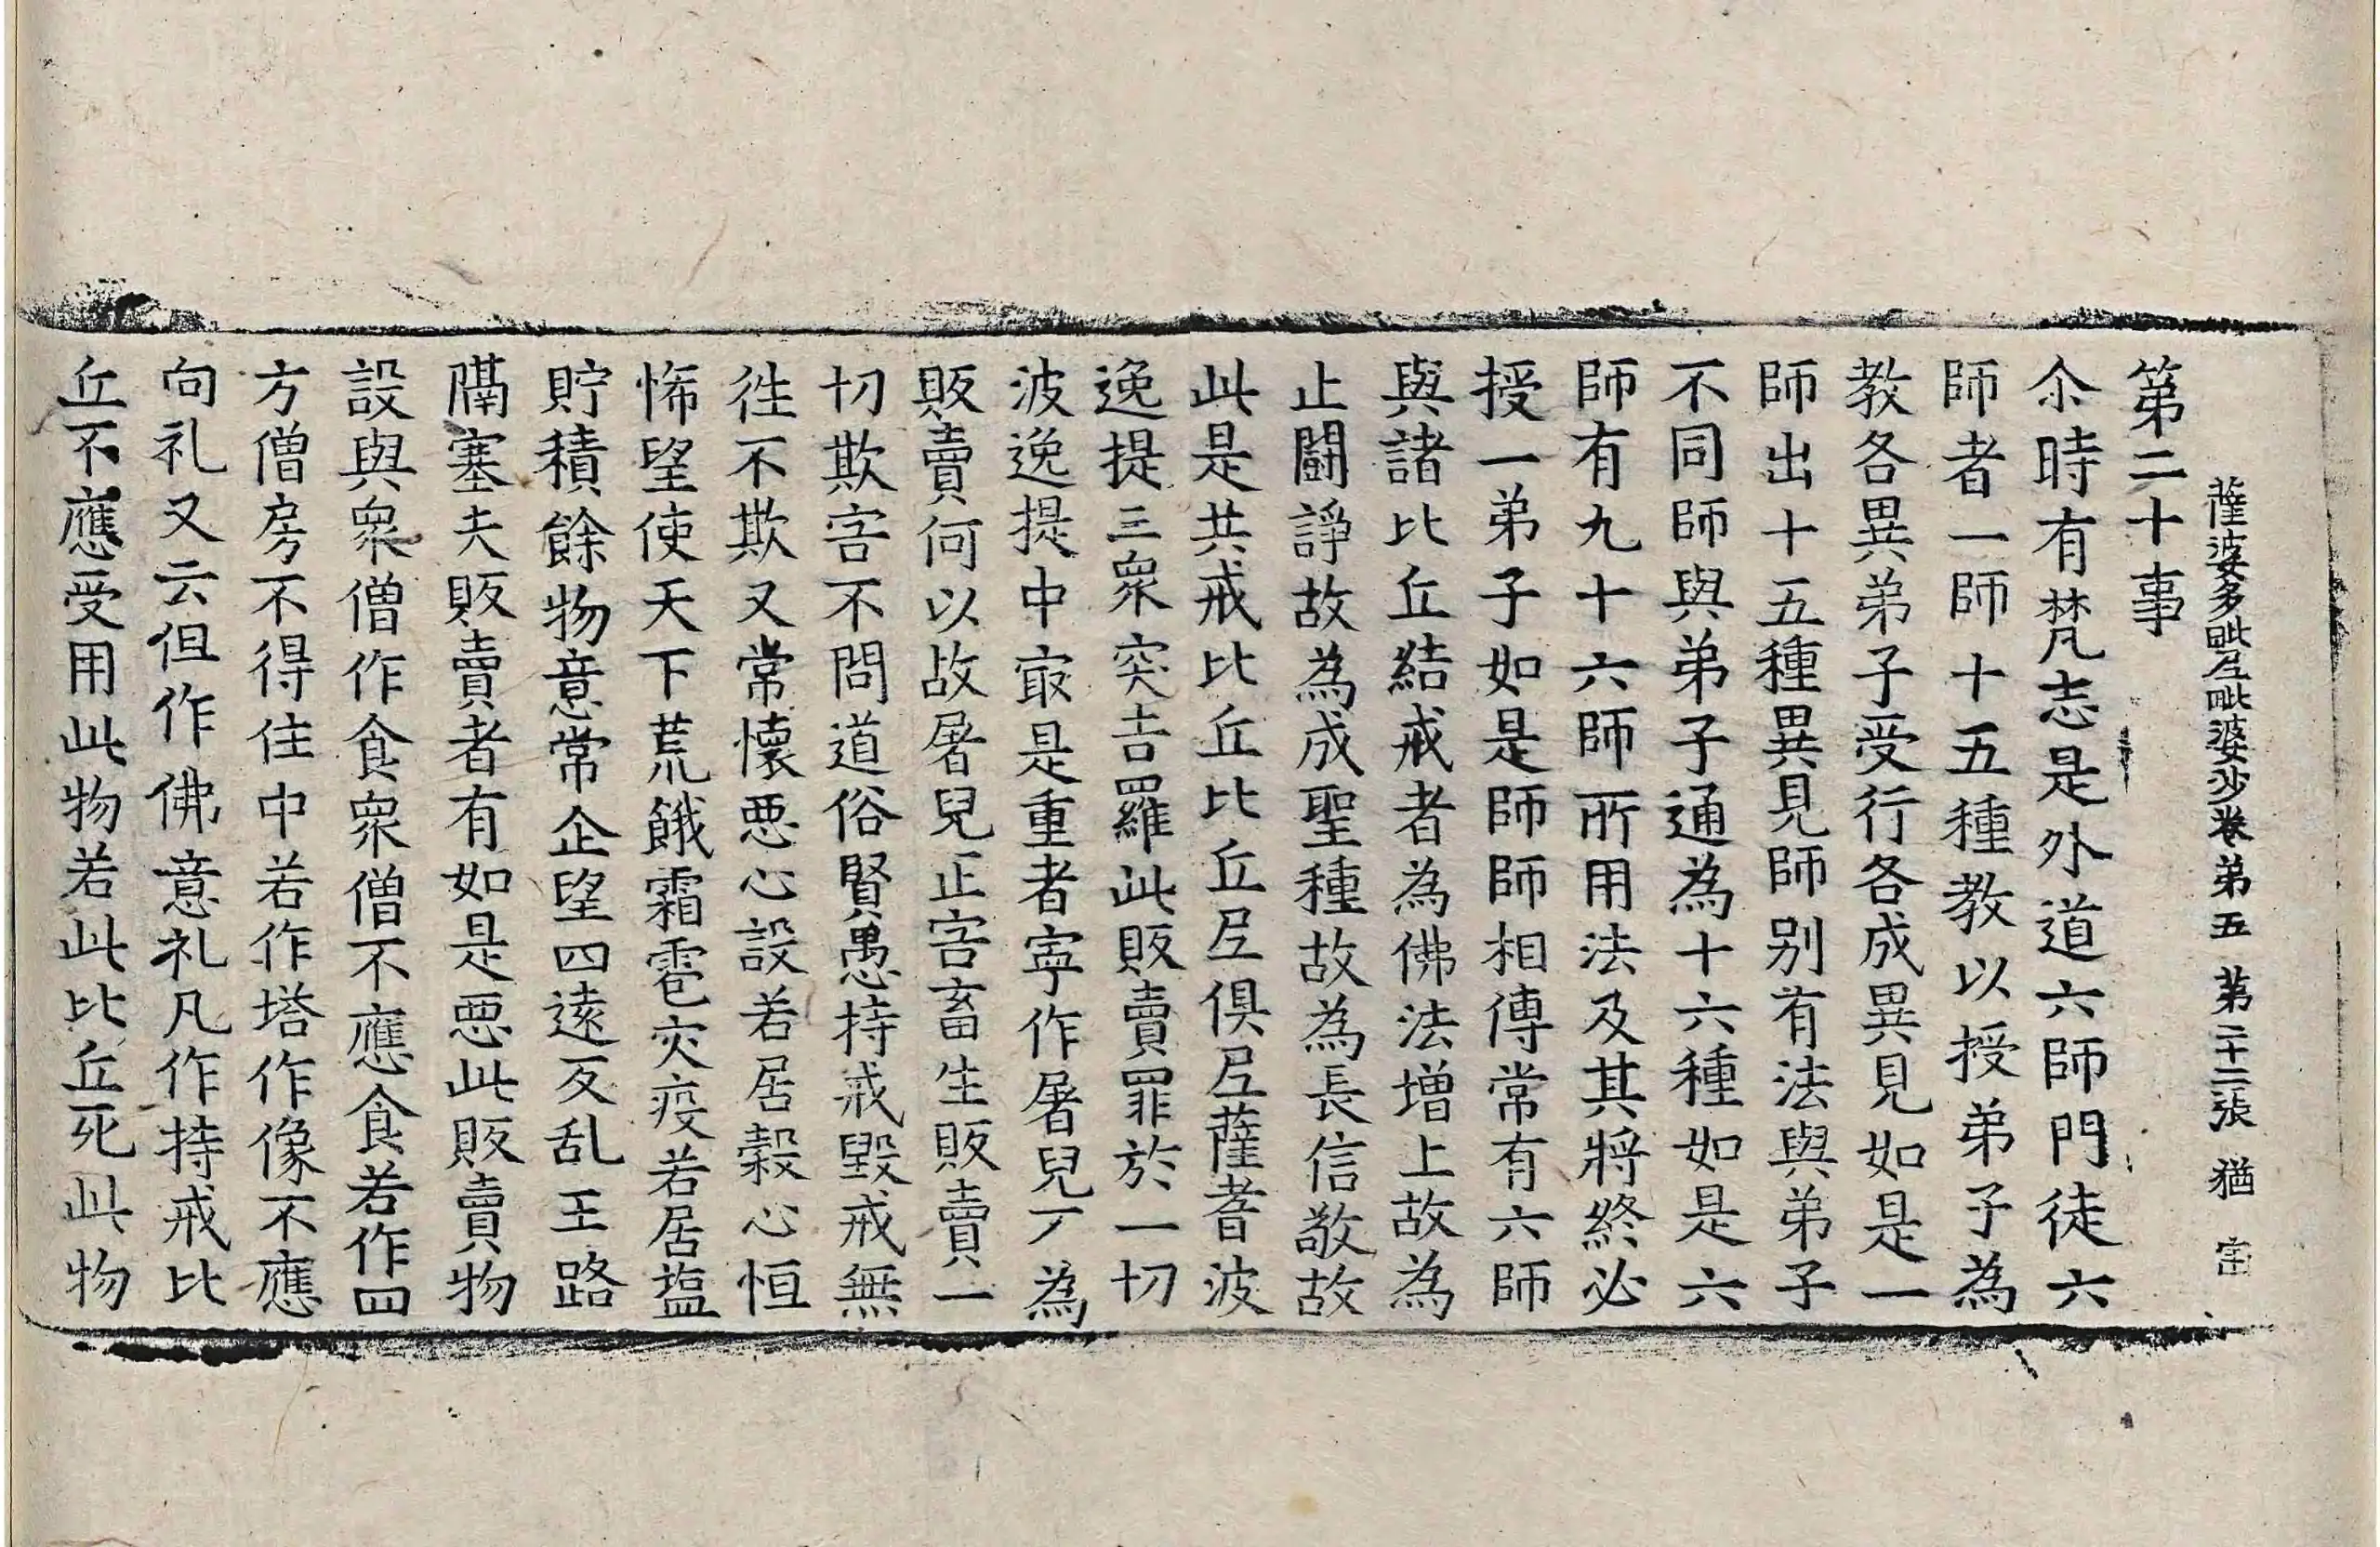 薩婆多毗尼毗婆沙卷第五 第二十二張 猶 字
第二十事
尒時有梵志是外道六師門徒六
師者一師十五種教以授弟子為
教各異弟子受行各成異見如是一
師出十五種異見師別有法與弟子
不同師與弟子通為十六種如是六
師有九十六師所用法及其將終必
授一弟子如是師師相傳常有六師
與諸比丘結戒者為佛法增上故為
止鬪諍故為成聖種故為長信敬故
此是共戒比丘比丘尼俱尼薩耆波
逸提三眾突吉羅此販賣罪於一切
波逸提中㝡是重者寧作屠兒不為
販賣何以故屠兒正害畜生販賣一
切欺害不問道俗賢愚持戒毀戒無
徃不欺又常懷惡心設若居穀心恒
悕望使天下荒餓霜雹灾疫若居塩
貯積餘物意常企望四遠反乱王路
隔塞夫販賣者有如是惡此販賣物
設與眾僧作食眾僧不應食若作四
方僧房不得住中若作塔作像不應
向礼又云但作佛意礼凡作持戒比
丘不應受用此物若此比丘死此物